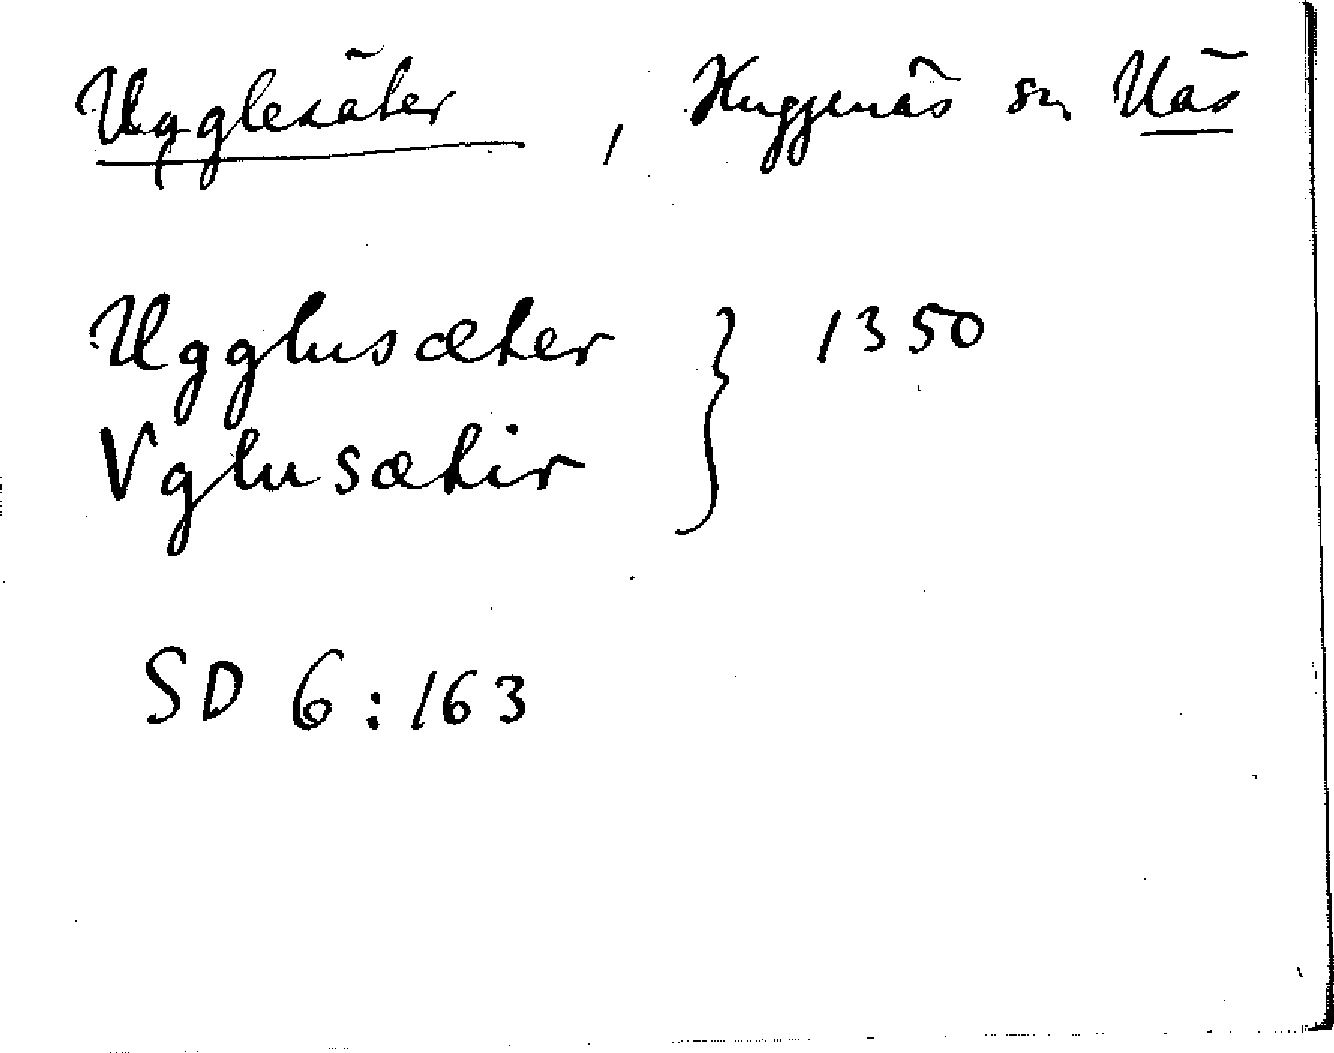 Ugglesäter, Huggenäs sn Näs
Ugglusæter } 1350
Vglusætir
SD 6:163